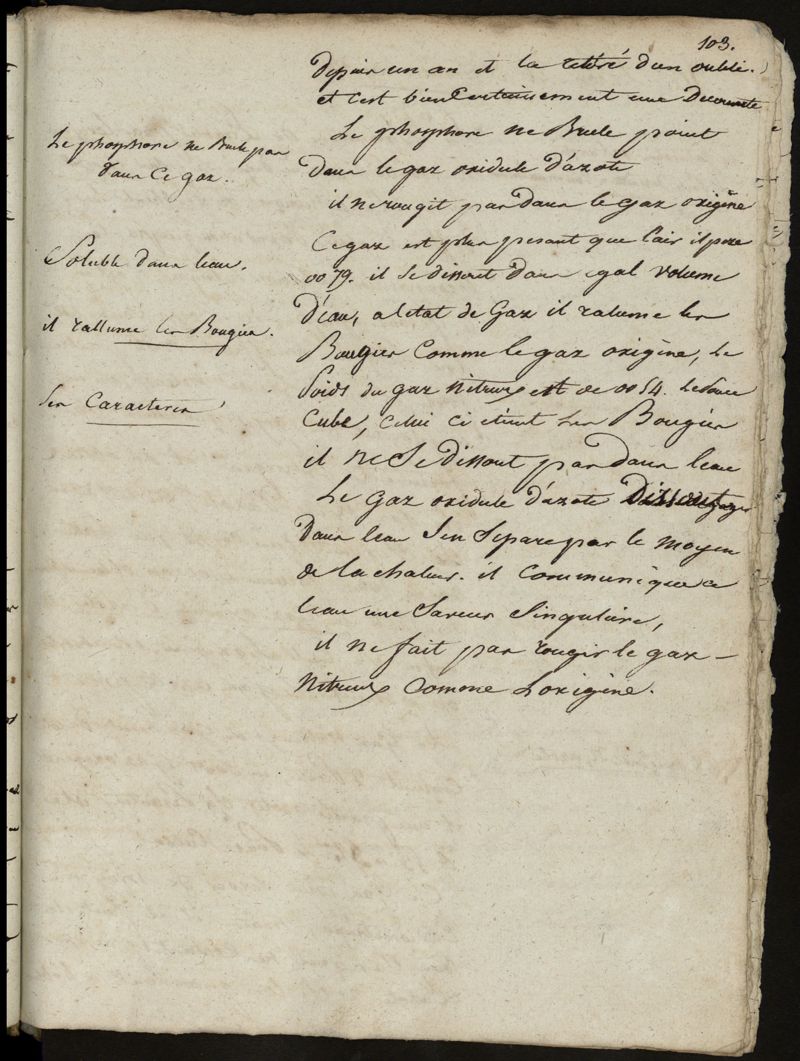 103.
depuis un an et la retiré d'un oubli.
et c'est bien certainement une Decouverte
Le phosphore ne Brule point
dans le gaz oxidule d'azote
Le phosphore ne Brule pas
dans Ce gaz.
il ne rougit pas dans le gaz oxigène
Ce gaz est plus pesant que l'air il pese
Soluble dans l'eau.
0079. il se dissout dans egal volume
d'eau, a l'etat de Gaz il ralume les
il rallume les Bougies.
Bougies Comme le gaz oxigène, Le
Poids du gaz Nitreux est de 0054. le pouce
Ses Caracteres
Cube, Celui ci eteint les Bougies
il ne Se dissout pas dans l'eau
Le Gaz oxidule d'azote Dissout
dans l'eau S'en Separe par le moyen
de la chaleur. il Communique a
l'eau une Saveur Singuliere,
il ne fait pas rougir le gaz
Nitreux Comme L'oxigène.